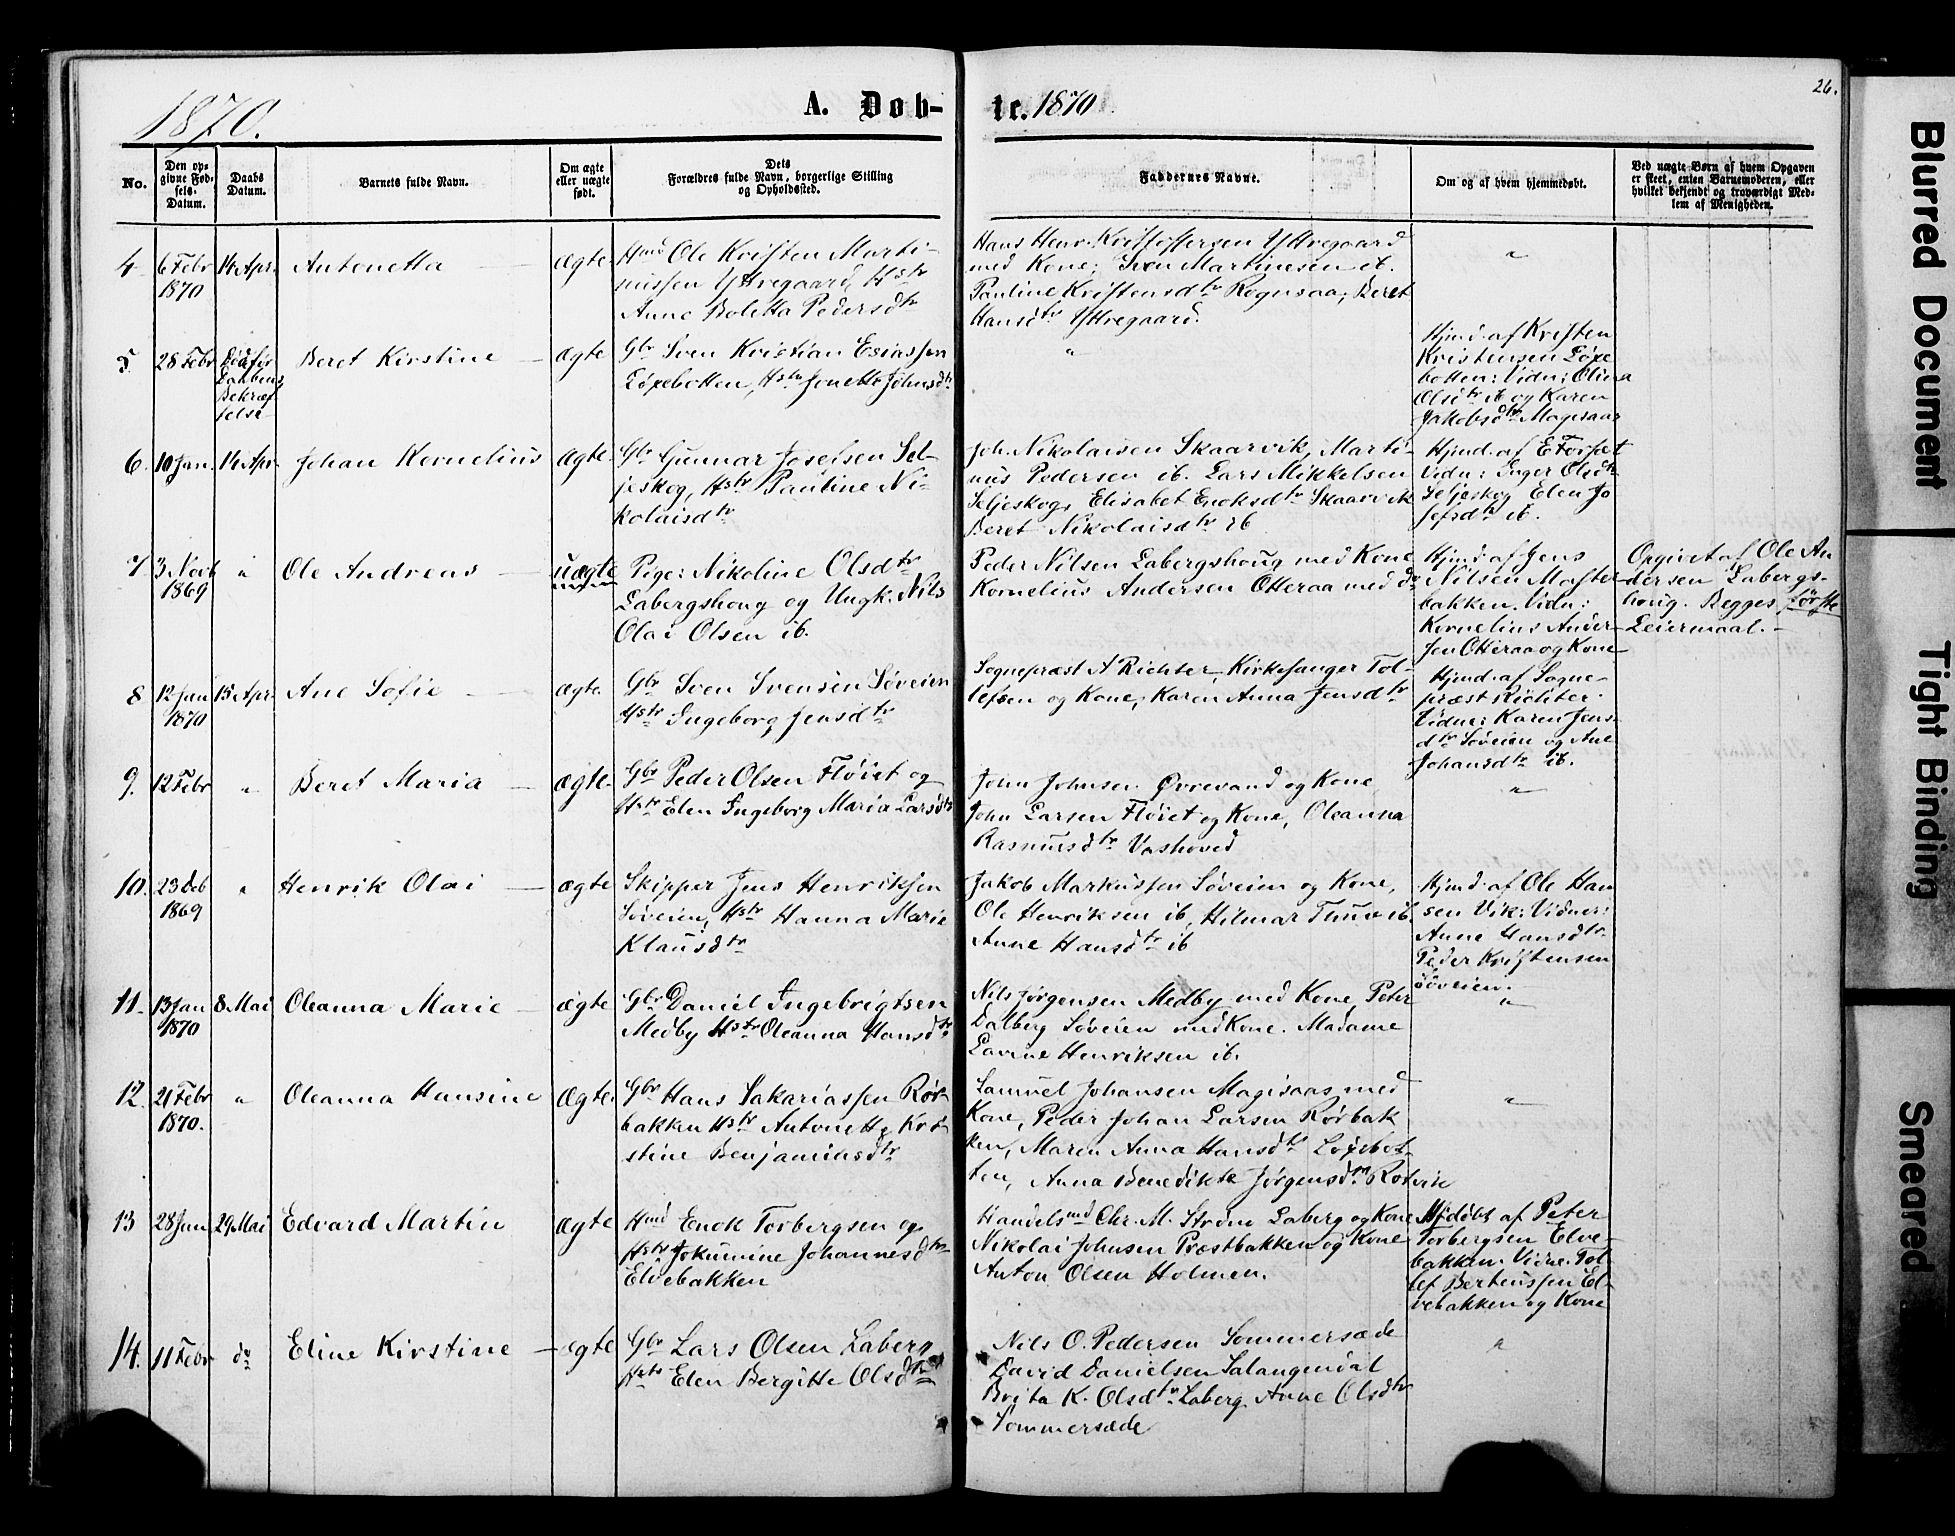 1870.
A. Døb-
te. 1870
26.
No.
Den op-
givne Fød-
sels-
Datum.
Daabs
Datum.
Barnets fulde Navn.
Om ægte
eller uægte
født.
Dets
Forældres fulde Navn, borgerlige Stilling
og Opholdssted.
Faddernes Navne.
Om og af hvem hjemmedøbt.
Ved uægte Børn af hvem Opgaven
er skeet, enten Barnemoderen, eller
hvilket bekjendt og troværdigt Med-
lem af Menigheden.
4
6 Febr
1870
14 Apr.
Antonetta
ægte
Hmd Ole Kristen Marti-
nussen Yttregaard, Hstr
Anne Boletta Pedersdtr
Hans Henr. Kristoffersen Yttregaard
med Kone; Sven Martinesen ib.
Pauline Kristensdtr Rognsaa; Beret
Hansdtr Yttregaard.
"
5
28 Febr
Død før
Daabens
Bekræf
telse
Beret Kirstine
ægte
Gbr Sven Kristian Esiassen
Løxebotten, Hstr Jonetta Johnsdtr
"
Hjmd. af Kristen
Kristensen Løxe
botten: Vidn: Olina
Olsdtr ib og Karen
Jakobsdtr Magisaas
6.
10 Jan.
14 Apr
Johan Kornelius
ægte
Gbr Gunnar Josefsen Sel-
jeskog, Hstr Pauline Ni-
kolaisdtr
Joh. Nikolaisen Skaarvik, Marti-
nus Pedersen ib. Lars Mikkelsen
Seljeskog, Elisabet Enoksdtr Skaarvik
Beret Nikolaisdtr ib
Hjmd. af E Forset
Vidn: Inger Olsdtr
Seljeskog Elen Jo
sefsdtr ib.
7
3 Novb
1869
"
Ole Andreas
uægte
Pige: Nikoline Olsdtr
Labergshoug og Ungk. Nils
Olai Olsen ib.
Peder Nilsen Labergshoug med Kone
Kornelius Andersen Otteraa med do
Hjmd. af Jens
Nilsen Moster-
bakken. Vidn:
Kornelius Ander-
sen Otteraa og Kone
Opgivet af Ole An
dersen Labergs-
houg. Begges første
Leiermaal.
8
12 Jan
1870
15 Apr.
Ane Sofie
ægte.
Gbr Sven Svensen Søveien
Hstr Ingeborg Jensdtr
Sognepræst A Richter, Kirkesanger Tol-
lefsen og Kone, Karen Anna Jensdtr
Hjmd. af Sogne-
præst Richter.
Vidne: Karen Jens-
dtr Søveien og Ane
Johansdtr ib.
9.
12 Febr
"
Beret Maria
ægte.
Gbr Peder Olsen Fløiet og
Hstr Elen Ingeborg Maria Larsdtr
John Johnsen Øvrevand og Kone
John Larsen Fløiet og Kone, Oleanna
Rasmusdtr Vashoved
"
10.
23 Deb
1869
"
Henrik Olai
ægte
Skipper Jens Henriksen
Søveien, Hstr Hanna Marie
Klausdtr
Jakob Markussen Søveien og Kone,
Ole Henriksen ib, Hilmar Thuv ib.
Anne Hansdtr ib
Hjmd. af Ole Han
sen Vik: Vidner:
Anne Hansdtr
Peder Kristensen
Søveien.
11
13 Jan
1870
8 Mai
Oleanna Marie
ægte
Gbr Daniel Ingebrigtsen
Medby Hstr Oleanna Hansdtr
Nils Jørgensen Medby med Kone, Peter
Dalberg Søveien med Kone. Madame
Lavine Henriksen ib.
"
12.
21 Febr
1870.
"
Oleanna Hansine
ægte.
Gbr Hans Sakariassen Rør-
bakken Hstr Antonette Kri-
stine Benjaminsdtr
Samuel Johansen Magisaas med
Kone, Peder Johan Larsen Rørbak
ken, Maren Anna Hansdtr Løxebot-
ten, Anna Benedikte Jørgensdtr Rotvik
"
13
28 Jan
29 Mai
Edvard Martin
ægte
Hmd Enok Torbergsen og
Hstr Jokumine Johannesdtr
Elvebakken
Handelsmd Chr. M. Strøm Laberg og Kone
Nikolai Johnsen Præstbakken og Kone
Anton Olsen Holmen.
Hjdøbt af Peter
Torbergsen Elve-
bakken. Vidne. Tol
lef Bertenssen El-
vebakken og Kone
14.
11 Febr
do
Eline Kirstine
ægte
Gbr Lars Olsen Laberg
Hstr Elen Bergitte Olsdtr
Nils O. Pedersen Sommersæde
David Danielsen Salangsndal
Brita K. Olsdtr Laberg Anne Olsdtr
Sommersæde
"
Blurred Document
Tight Binding
Smeared